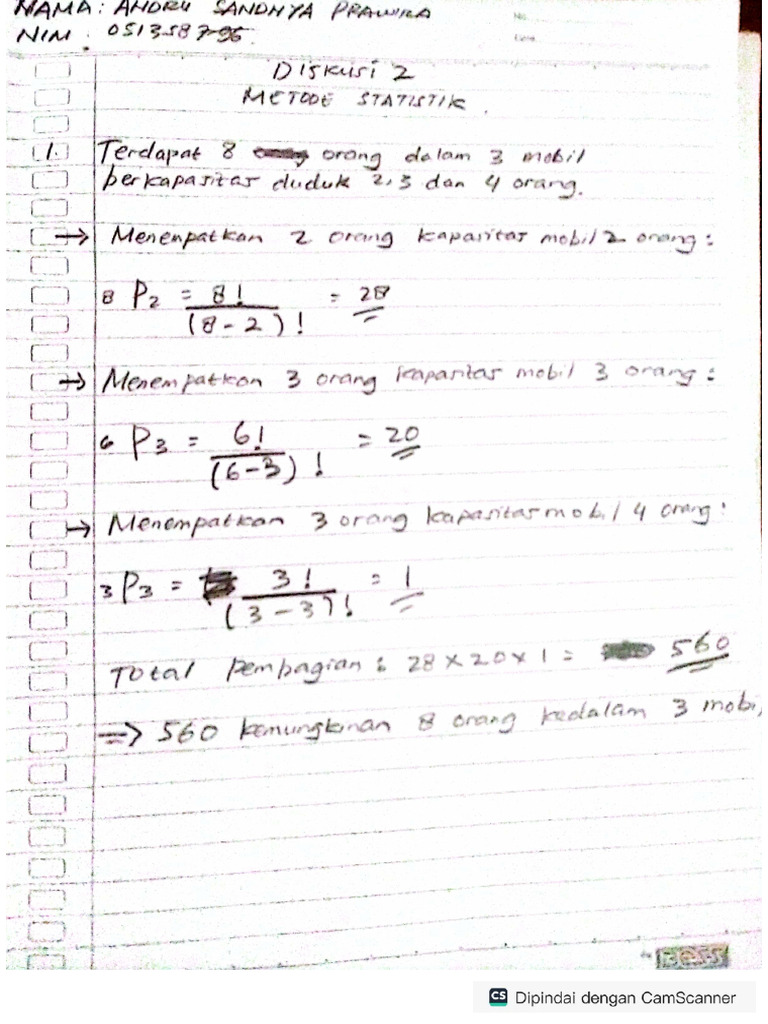 NAMA : ANDRU SANDHYA PRAWIRA
NIM : 051358796
No.
Date
DISKUSI 2
METODE STATISTIK.
1. Terdapat 8 orang dalam 3 mobil
berkapasitas duduk 2,3 dan 4 orang.
→ Menenpatkan 2 orang kapasitas mobil 2 orang :
8 P2 = 8! / (8-2)! = 28
→ Menempatkan 3 orang kapasitas mobil 3 orang :
6 P3 = 6! / (6-3)! = 20
→ Menempatkan 3 orang kapasitas mobil 4 orang :
3 P3 = 3! / (3-3)! = 1
Total pembagian : 28 x 20 x 1 = 560
=> 560 kemungkinan 8 orang kedalam 3 mobi
CS Dipindai dengan CamScanner